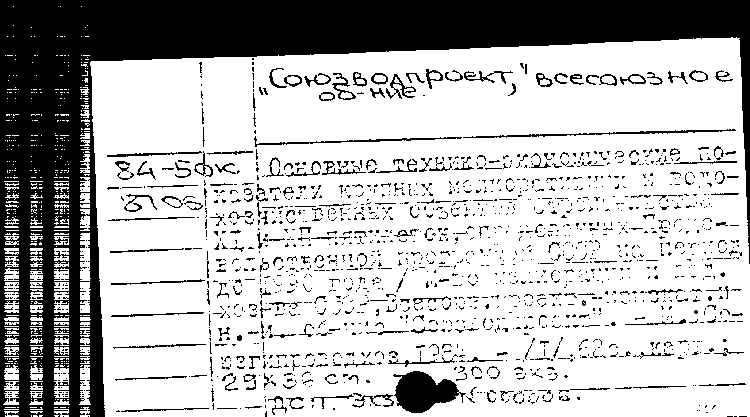 „Союзводпроект,“ всесоюзное
об-ние.
84-50к Основные технико-экономические по-
8706 казатели крупных мелиоративных и водо-
хозяйственных объектов строительства
XI и XII пятилеток, определенных Продо-
вольственной программой СССР на период
до 1990 года / М-во мелиорации и вод.
хоз-ва СССР, Всесоюз. проект.-изыскат. и
н.-и. об-ние "Союзводпроект". - М.: Со-
юзгипроводхоз, 1984. - /I/, 62 с., карт.;
29х36 см. - 300 экз.
ДСП. Экз. N